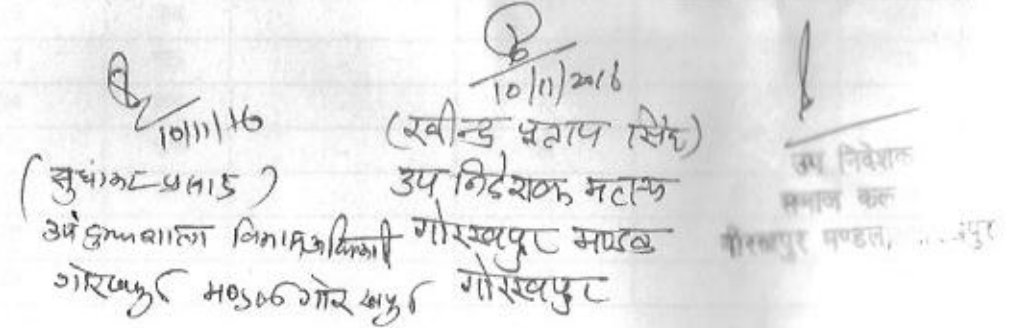 10/11/16
(सुधाकर प्रसाद)
उप दुग्धशाला विकास अधिकारी
गोरखपुर मण्डल गोरखपुर
10/11/2016
(रवीन्द्र प्रताप सिंह)
उप निदेशक मत्स्य
गोरखपुर मण्डल
गोरखपुर
उप निदेशक
समाज कल
गोरखपुर मण्डल, ....पुर